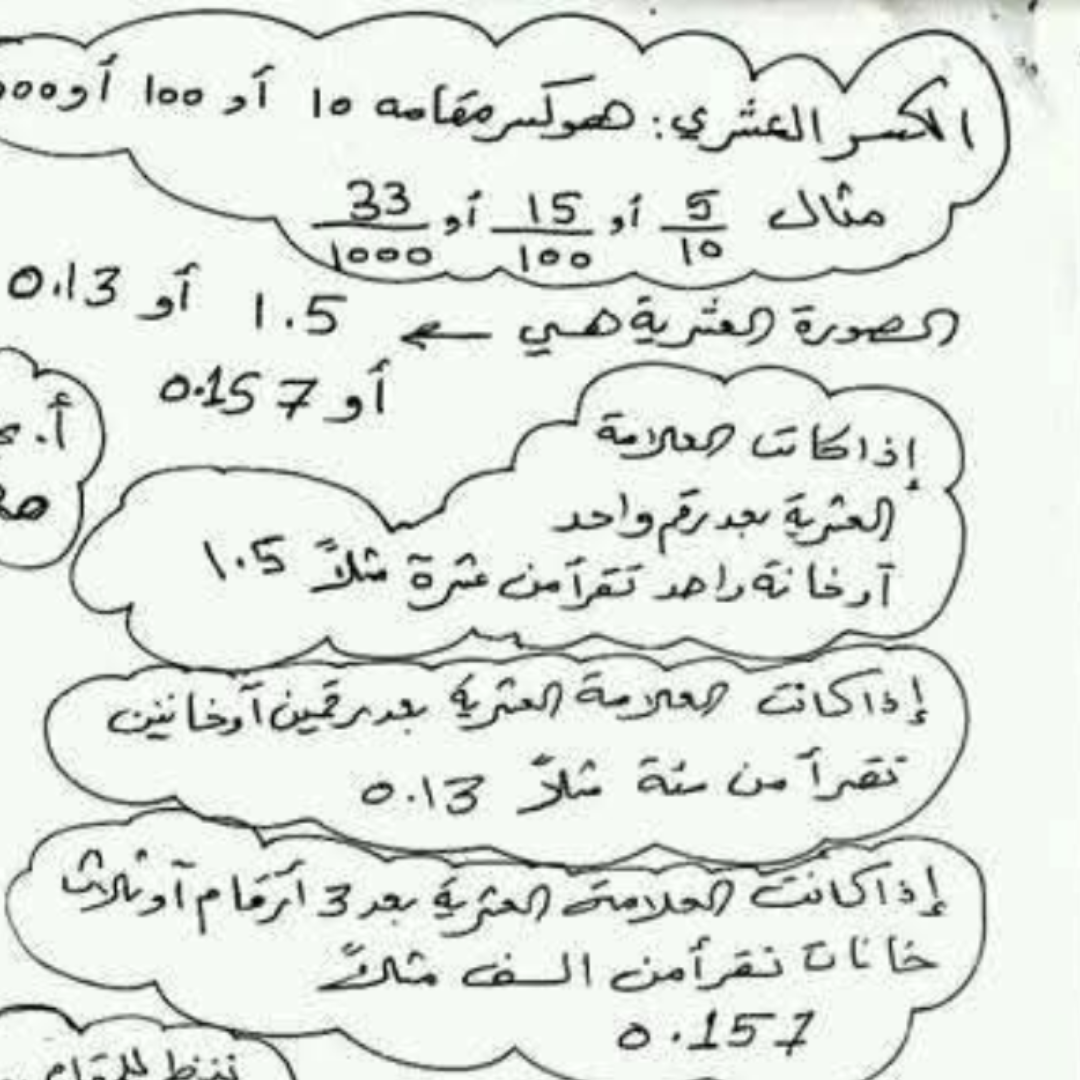 الكسر العشري: هو كسر مقامه 10 أو 100 أو 000
مثال 5/10 أو 15/100 أو 33/1000
الصورة العشرية هي ← 1.5 أو 0.13
أو 0.157
إذا كانت العلامة
العشرية بعد رقم واحد
أو خانة واحد تقرأ من عشرة مثلاً 1.5
إذا كانت العلامة العشرية بعد رقمين أو خانتين
تقرأ من مئة مثلاً 0.13
إذا كانت العلامة العشرية بعد 3 أرقام أو ثلاث
خانات نقرأ من الف مثلاً
0.157